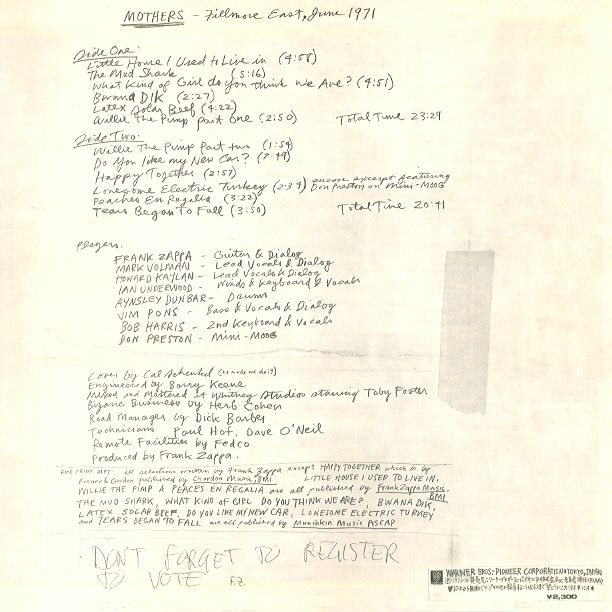 MOTHERS - Fillmore East, June 1971
Side One:
Little House I Used to Live in (4:58)
The Mud Shark (5:16)
What Kind of Girl do you think we Are? (4:51)
Bwana DIK (2:27)
Latex Solar Beef (4:22)
Willie The Pimp part One (2:50) Total Time 23:29
Side Two:
Willie The Pimp Part two (1:54)
Do You like my New Car? (7:49)
Happy Together (2:57)
Lonesome Electric Turkey (2:34) encore excerpt featuring Don Preston on Mini-MOOG
Peaches En Regalia (3:22)
Tears Began To Fall (3:50) Total Time 20:41
Players:
FRANK ZAPPA - Guitar & Dialog
MARK VOLMAN - Lead Vocals & Dialog
HOWARD KAYLAN - Lead Vocals & Dialog
IAN UNDERWOOD - Winds & Keyboard & Vocals
AYNSLEY DUNBAR - Drums
JIM PONS - Bass & Vocals & Dialog
BOB HARRIS - 2nd Keyboard & Vocals
DON PRESTON - Mini-MOOG
Cover by Cal Schenkel (he made me do it)
Engineered by Barry Keene
Mixed and Mastered at Whitney Studios starring Toby Foster
Bizarre Business by Herb Cohen
Road Manager by Dick Barber
Technicians Paul Hof, Dave O'Neil
Remote Facilities by Fedco
Produced by Frank Zappa.
FINE PRINT DEPT. all selections written by Frank Zappa except HAPPY TOGETHER which is by
Bonner & Gordon published by Chardon Music, BMI LITTLE HOUSE I USED TO LIVE IN,
WILLIE THE PIMP & PEACES EN REGALIA are all published by Frank Zappa Music, BMI
THE MUD SHARK, WHAT KIND OF GIRL DO YOU THINK WE ARE?, BWANA DIK,
LATEX SOLAR BEEF, DO YOU LIKE MY NEW CAR, LONESOME ELECTRIC TURKEY
and TEARS BEGAN TO FALL are all published by Munchkin Music ASCAP
DON'T FORGET TO REGISTER
TO VOTE F.Z.
WARNER BROS.-PIONEER CORPORATION•TOKYO, JAPAN
¥2,300